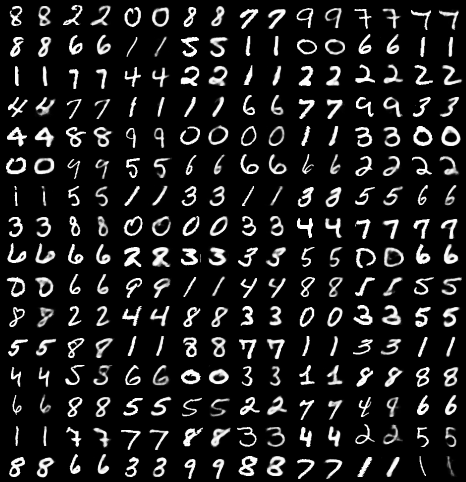 8 8 2 2 0 0 8 8 7 7 9 9 7 7 7 7
8 8 6 6 1 1 5 5 1 1 0 0 6 6 1 1
1 1 7 7 4 4 2 2 1 1 2 2 2 2 2 2
4 4 7 7 1 1 1 1 6 6 7 7 9 9 3 3
4 4 8 8 9 9 0 0 0 0 1 1 3 3 0 0
0 0 9 9 5 5 6 6 6 6 6 6 2 2 2 2
1 1 5 5 1 1 3 3 1 1 3 8 5 5 6 6
3 3 8 8 0 0 0 0 3 3 4 4 7 7 7 7
6 6 6 6 2 8 3 3 3 3 5 5 0 0 6 6
0 0 6 6 9 9 1 1 4 4 8 8 5 5 5 5
8 8 2 2 4 4 8 8 3 3 0 0 3 3 5 5
5 5 8 8 1 1 3 8 7 7 1 1 3 3 1 1
4 4 5 5 6 6 0 0 3 3 1 1 8 8 8 8
6 6 8 8 5 5 5 5 2 2 7 7 4 9 6 6
1 1 7 7 7 7 8 8 3 3 4 4 2 2 5 5
8 8 6 6 3 3 9 9 8 8 7 7 1 1 1 1